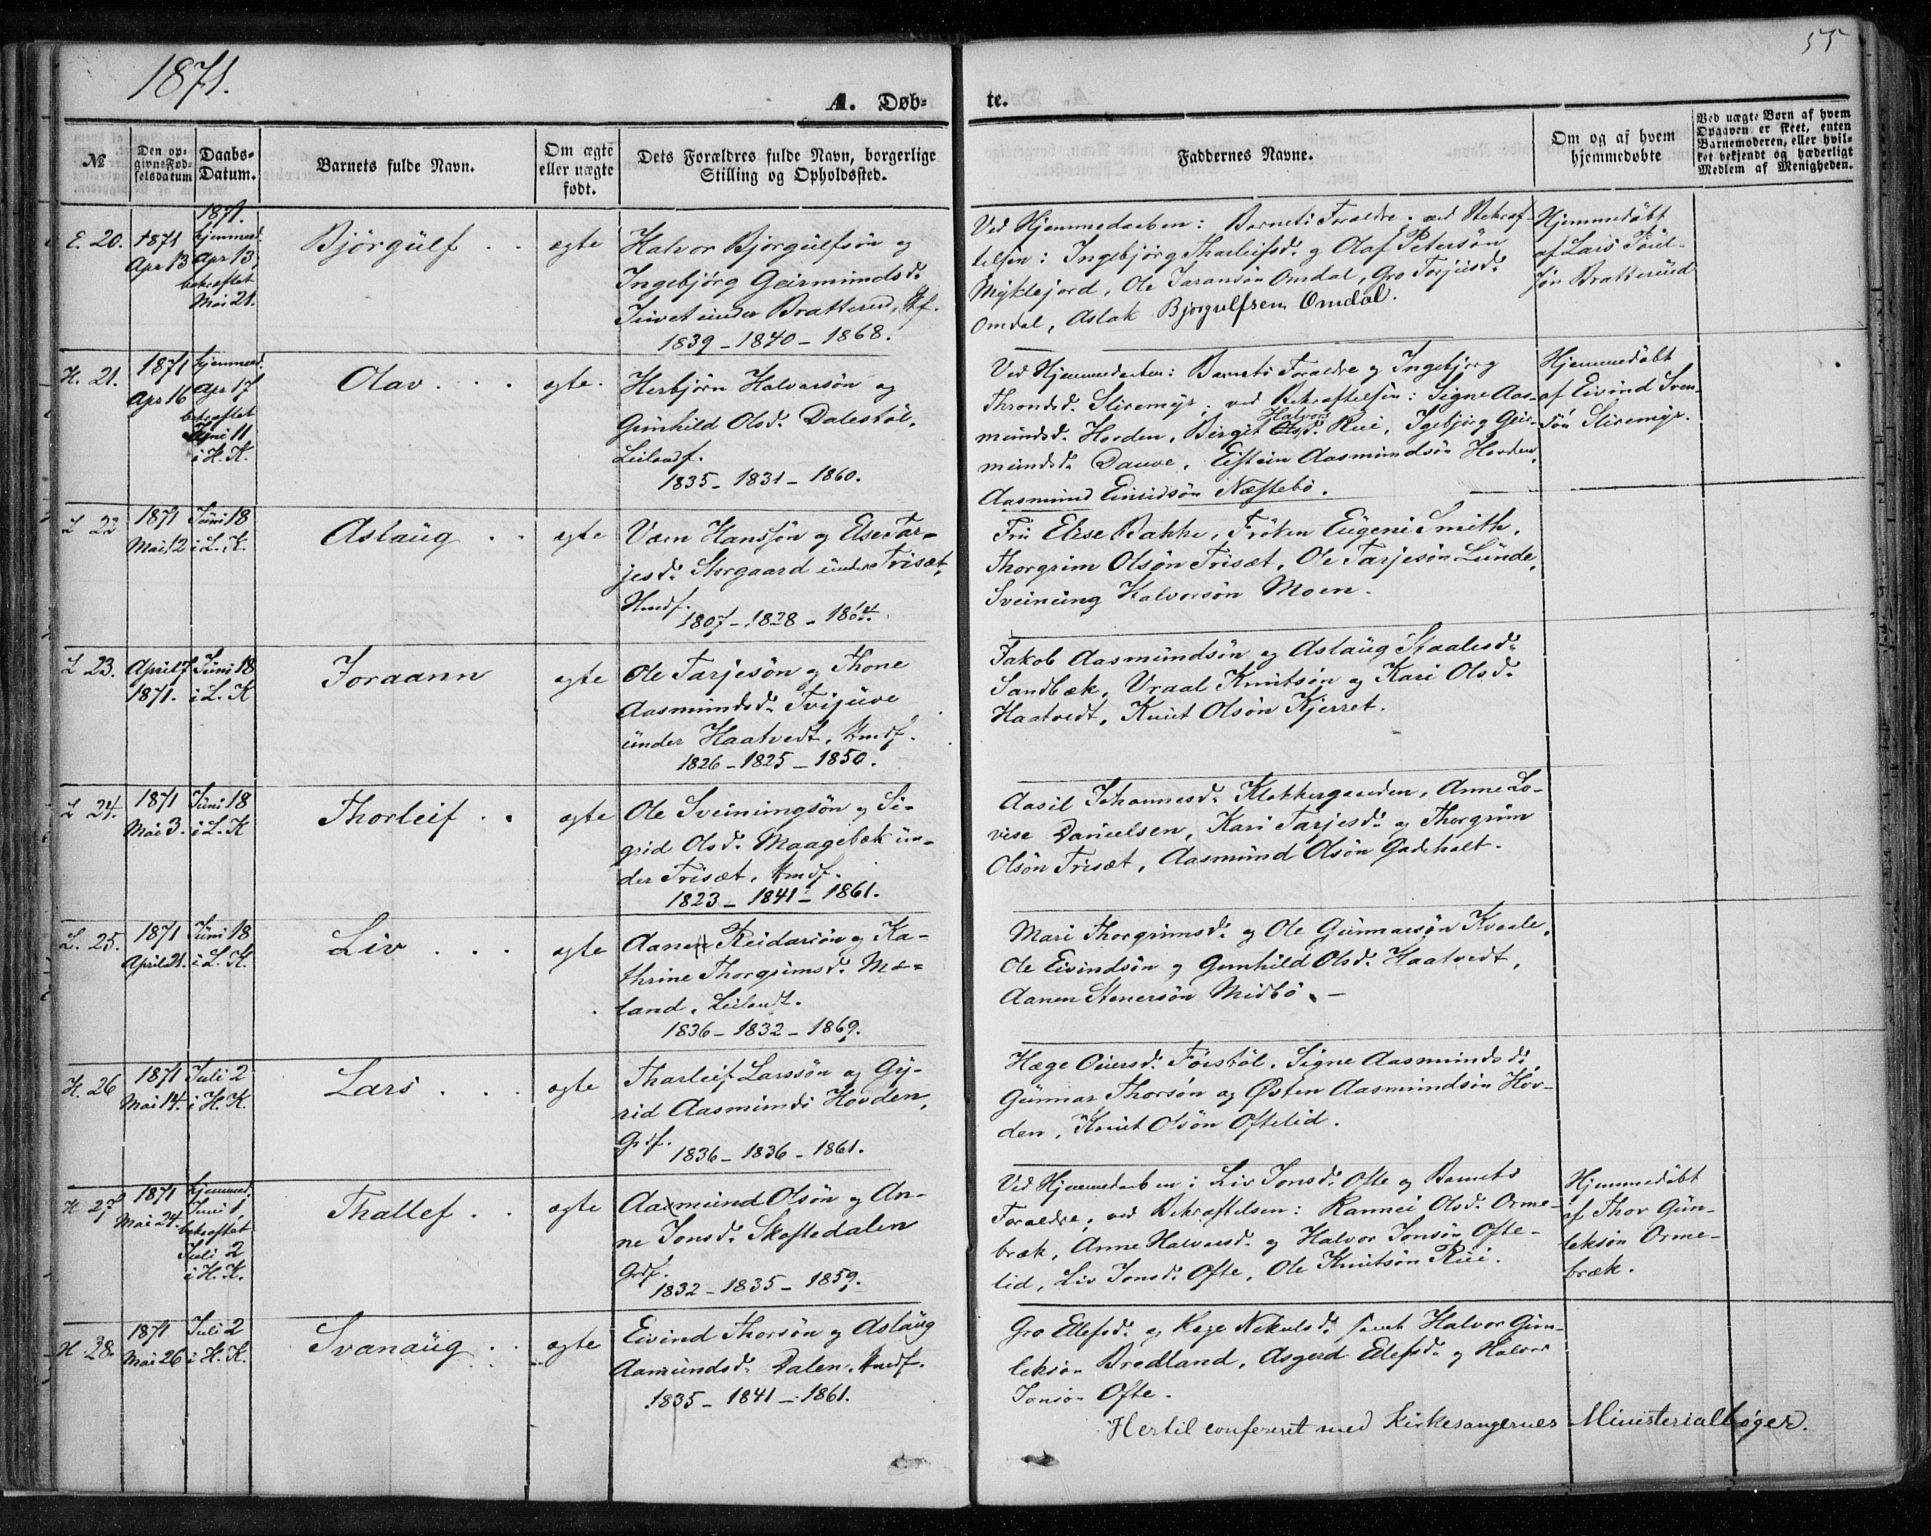 1871.
55
A. Døb=
te.
№
Den op-
givne Fød-
selsdatum
Daabs-
Datum.
Barnets fulde Navn.
Om ægte
eller uægte
født.
Dets Forældres fulde Navn, borgerlige
Stilling og Opholdssted.
Faddernes Navne.
Om og af hvem
hjemmedøbte
Ved uægte Børn af hvem
Opgaven er skeet, enten
Barnemoderen, eller hvil-
ket bekjendt og hæderligt
Medlem af Menigheden.
E. 20.
1871
Apr 13
1871.
hjemmed.
Apr 13,
bekræftet
Mai 21.
Bjørgülf
ægte
Halvor Bjørgülfsøn og
Ingebjørg Geirmundsd.
Juvet under Bratterud,
1839 - 1840 - 1868.
Ved Hjemmedaaben: Barnets Forældre; ved Bekræf-
telsen: Ingebjørg Tharleifsd. og Olaf Petersøn
Myklejord, Ole Jøransøn Omdal, Gro Torjusd.
Omdal, Aslak Bjørgulfsen Omdal.
Hjemmedøbt
af Lars Poül-
søn Bratterüd
H. 21.
1871
Apr 16
hjemmed.
Apr 17
bekræftet
Juni 11
i H. K.
Olav
ægte.
Herbjörn Halvorsøn og
Günhild Olsd. Dalestöl,
Leilændf.
1835 - 1831 - 1860.
Ved Hjemmedaaben: Barnets Forældre og Ingebjørg
Throndsd. Sliremyr; ved Bekræftelsen: Signe Aas-
mundsd. Hovden, Birgit Halvorsd. Rui, Igebjørg Geir-
mundsd. Dauve, Eistein Aasmundsøn Hovden,
Aasmund Einridsøn Næstebö.
Hjemmedøbt
af Eivind Sven-
søn Sliremyr.
L 22
1871
Mai 12
Juni 18
i L. K.
Aslaüg
ægte
Værn Hanssøn og Else Tar-
jesd. Storgaard under Trisæt,
Hmdf.
1807 - 1828 - 1864.
Fru Elise Bakke, Frøken Eugeni Smith,
Thorgrim Olsøn Trisæt, Ole Tarjesøn Lünde,
Sveinung Halvorsøn Moen.
L 23.
April 7
1871.
Juni 18
i L. K
Joraann
ægte
Ole Tarjesøn og Thone
Aasmundsd. Tvijuve
ünder Haatvedt, Hmdf.
1826 - 1825 - 1850.
Jakob Aasmundsøn og Aslaug Staalesd.
Sandbæk, Vraal Knutsøn og Kari Olsd.
Haatvedt, Knut Olsøn Kjerret.
L 24.
1871
Mai 3.
Juni 18
i L. K
Thorleif
ægte
Ole Sveinungsøn og Si-
grid Olsd. Maagebæk ün-
der Trisæt, Hmdf.
1823 - 1841 - 1861.
Aasil Johannesd. Klokkergaarden, Anne Lo-
vise Danielsen, Kari Tarjesd. og Thorgrim
Olsøn Trisæt, Aasmund Olsøn Gadeholt.
L. 25.
1871
April 21.
Juni 18
i L. K.
Liv
ægte
Aanen Reidarsøn og Ka-
thrine Thorgrimsd. Mæ-
land, Leilændt.
1836 - 1832 - 1869.
Mari Thorgrimsd. og Ole Günnarsøn Kvaale,
Ole Eivindsøn og Gunhild Olsd. Haatvedt,
Aanen Stenersøn Midbø. -
H. 26
1871
Mai 14.
Juli 2
i H. K.
Lars
ægte
Tharleif Larssøn og Gy-
rid Aasmunds Hovden,
Grdf.
1836 - 1836 - 1861.
Hæge Eiversd. Förstöl, Signe Aasmundsd.
Günnar Thorsøn og Østen Aasmundsøn Hov-
den, Knut Olsøn Oftelid.
H. 27
1871
Mai 24.
hjemmed.
Juni 1,
bekræftet
Juli 2
i H. K.
Thallef
ægte
Aasmund Olsøn og An-
ne Jonsd. Skaftedalen
Grdf.
1832 - 1835 - 1859.
Ved Hjemmedaaben: Liv Jonsd. Ofte og Barnets
Forældre; ved Bekræftelsen: Rannei Olsd. Orme-
bræk, Anne Halvorsd. og Halvor Jonsøn Ofte-
lid, Liv Jonsd. Ofte, Ole Knutsøn Rui.
Hjemmedøbt
af Thor Gün-
leksøn Orme-
bræk.
H. 28.
1871
Mai 26
Juli 2
i H. K.
Svanaüg
ægte
Eivind Thorsøn og Aslaüg
Aamundsd. Dalen, Hmdf.
1835 - 1841 - 1861.
Gro Ellefsd. og Hæge Nekulsd. samt Halvor Gün-
leksøn Bredland, Asgerd Ellefsd. og Halvor
Jonsøn Ofte.
Hertil confereret med Kirkesangernes Ministerialbøger.